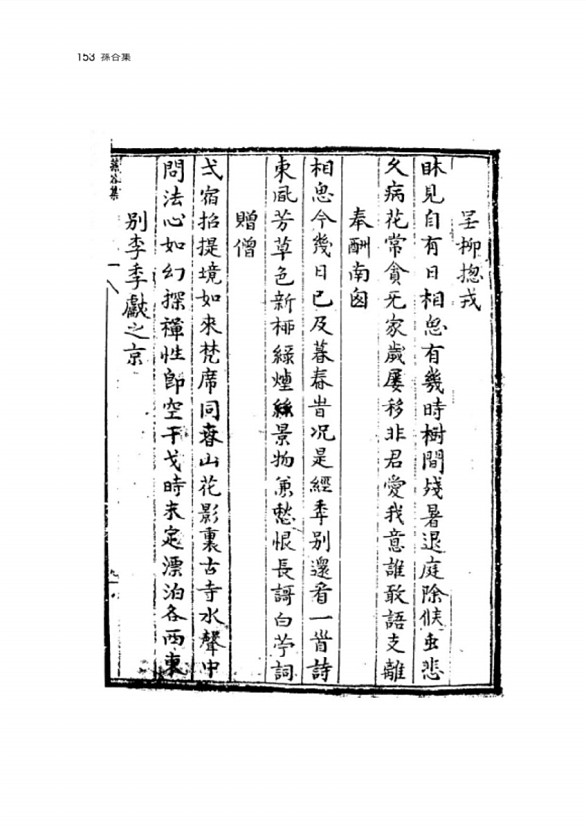 153 孫合集
呈柳揔戎
眛見自有日相思有幾時樹間殘暑退庭除候虫悲
久病花常貪无家歲屢移非君愛我意誰敢語支離
奉酬南囱
相思今幾日已及暮春旹况是經年別還看一首詩
東風芳草色新柳綠煙絲景物兼愁恨長謌白苧詞
贈僧
弌宿招提境如來梵席同春山花影裏古寺水聲中
問法心如幻探禪性卽空干戈時未定漂泊各西東
別李季獻之京
蓀谷集